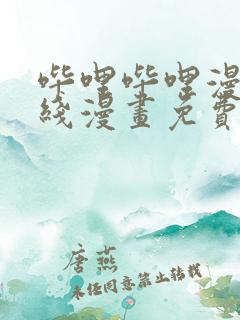 哔哩哔哩漫
线漫畫免費
唐燕
未经同意禁止转载